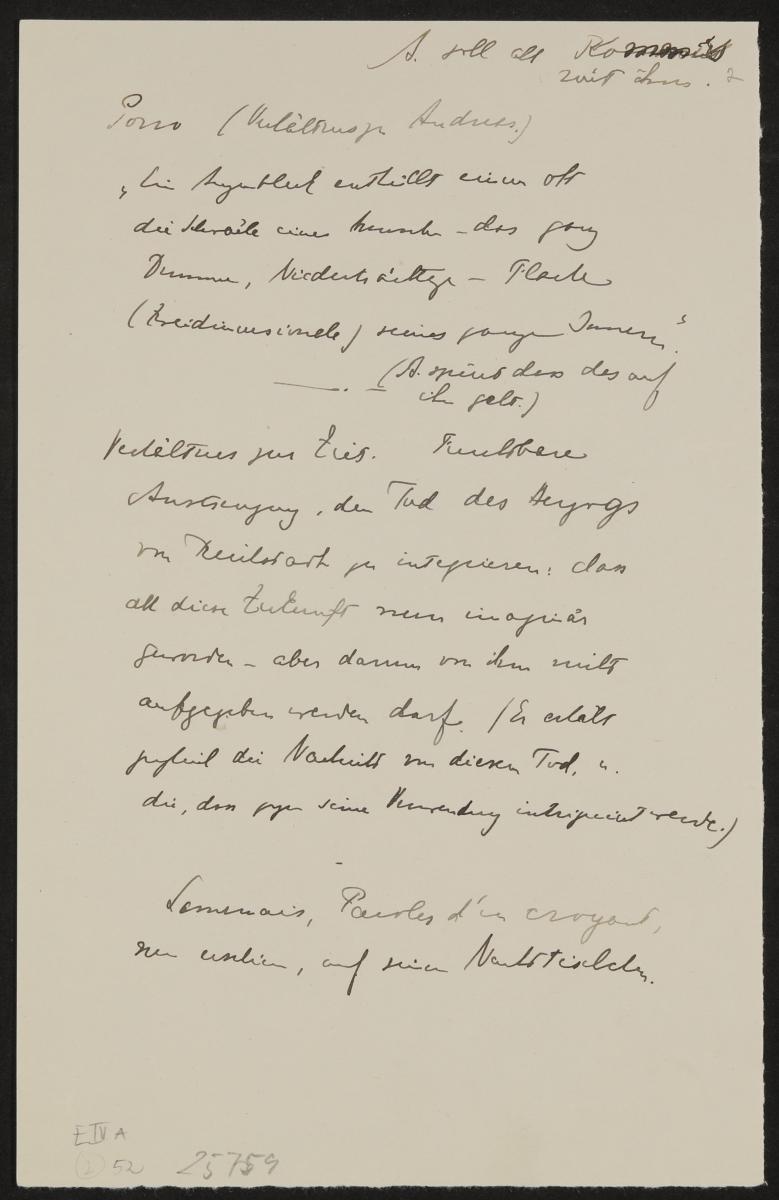 A. soll als
Porro (Verhältnis zu Andreas.)
„Ein Augenblick enthüllt einem oft
die Schwäche eines Menschen – das ganz
Dumme, Niederträchtige – Flache
(Zweidimensionale) seines ganzen Innern“.
(A. spürt dass das auf
ihn geht.)
Verhältnis zur Zeit. Furchtbare
Anstrengung, den Tod des Herzogs
von Reichstadt zu integrieren: dass
all diese Zukunft nun imaginär
geworden – aber darum von ihm nicht
aufgegeben werden darf. (Er erhält
zugleich die Nachricht von diesem Tod, u.
die, dass gegen seine Verwendung intriguiert werde.)
Lamennais, Paroles d'un croyant,
neu erschienen, auf seinem Nachttischchen.
E IV A
52 25759